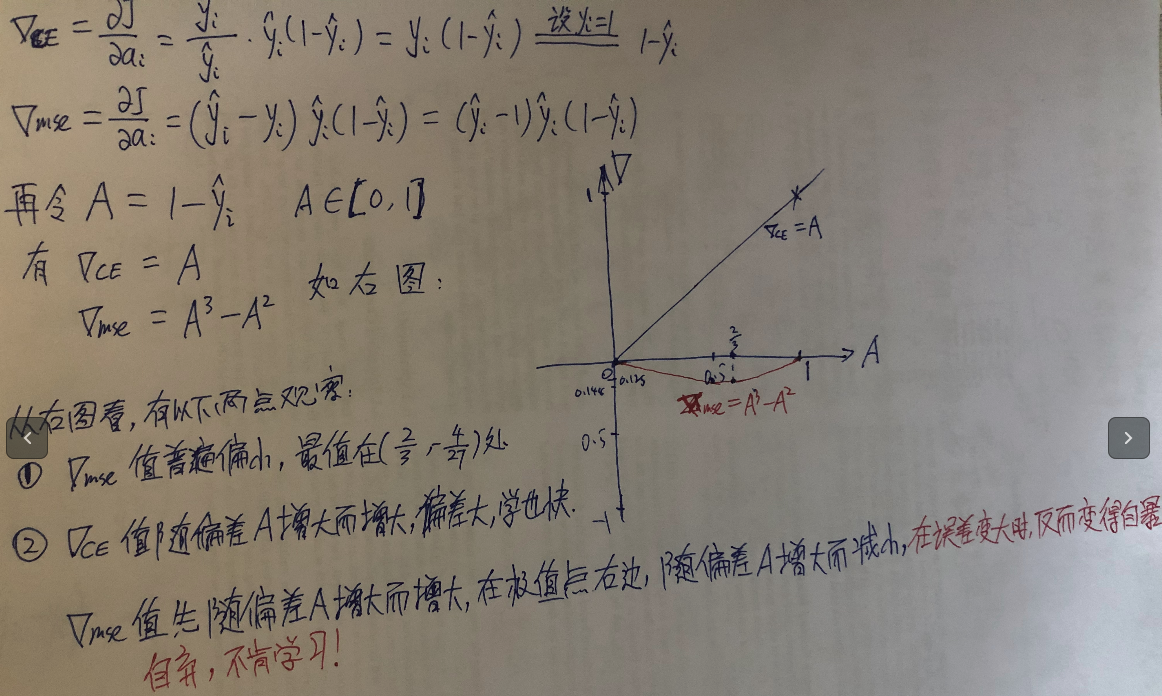 ∇CE = ∂J/∂aᵢ = yᵢ/ŷᵢ · ŷᵢ(1-ŷᵢ) = yᵢ(1-ŷᵢ) 设yᵢ=1 1-ŷᵢ
∇mse = ∂J/∂aᵢ = (ŷᵢ - yᵢ) ŷᵢ(1-ŷᵢ) = (ŷᵢ-1)ŷᵢ(1-ŷᵢ)
再令 A = 1-ŷᵢ A∈[0,1]
有 ∇CE = A
∇mse = A³-A² 如右图:
∇
1
∇CE = A
2/3
A
0
0.125
0.5
1
0.148
∇mse = A³-A²
0.5
-1
从右图看,有以下两点观察:
① ∇mse 值普遍偏小,最值在(2/3, -4/27)处
② ∇CE 值随偏差A增大而增大,偏差大,学也快.
∇mse 值先随偏差A增大而增大,在极值点右边,随偏差A增大而减小,在误差变大时,反而变得自暴
自弃,不肯学习!